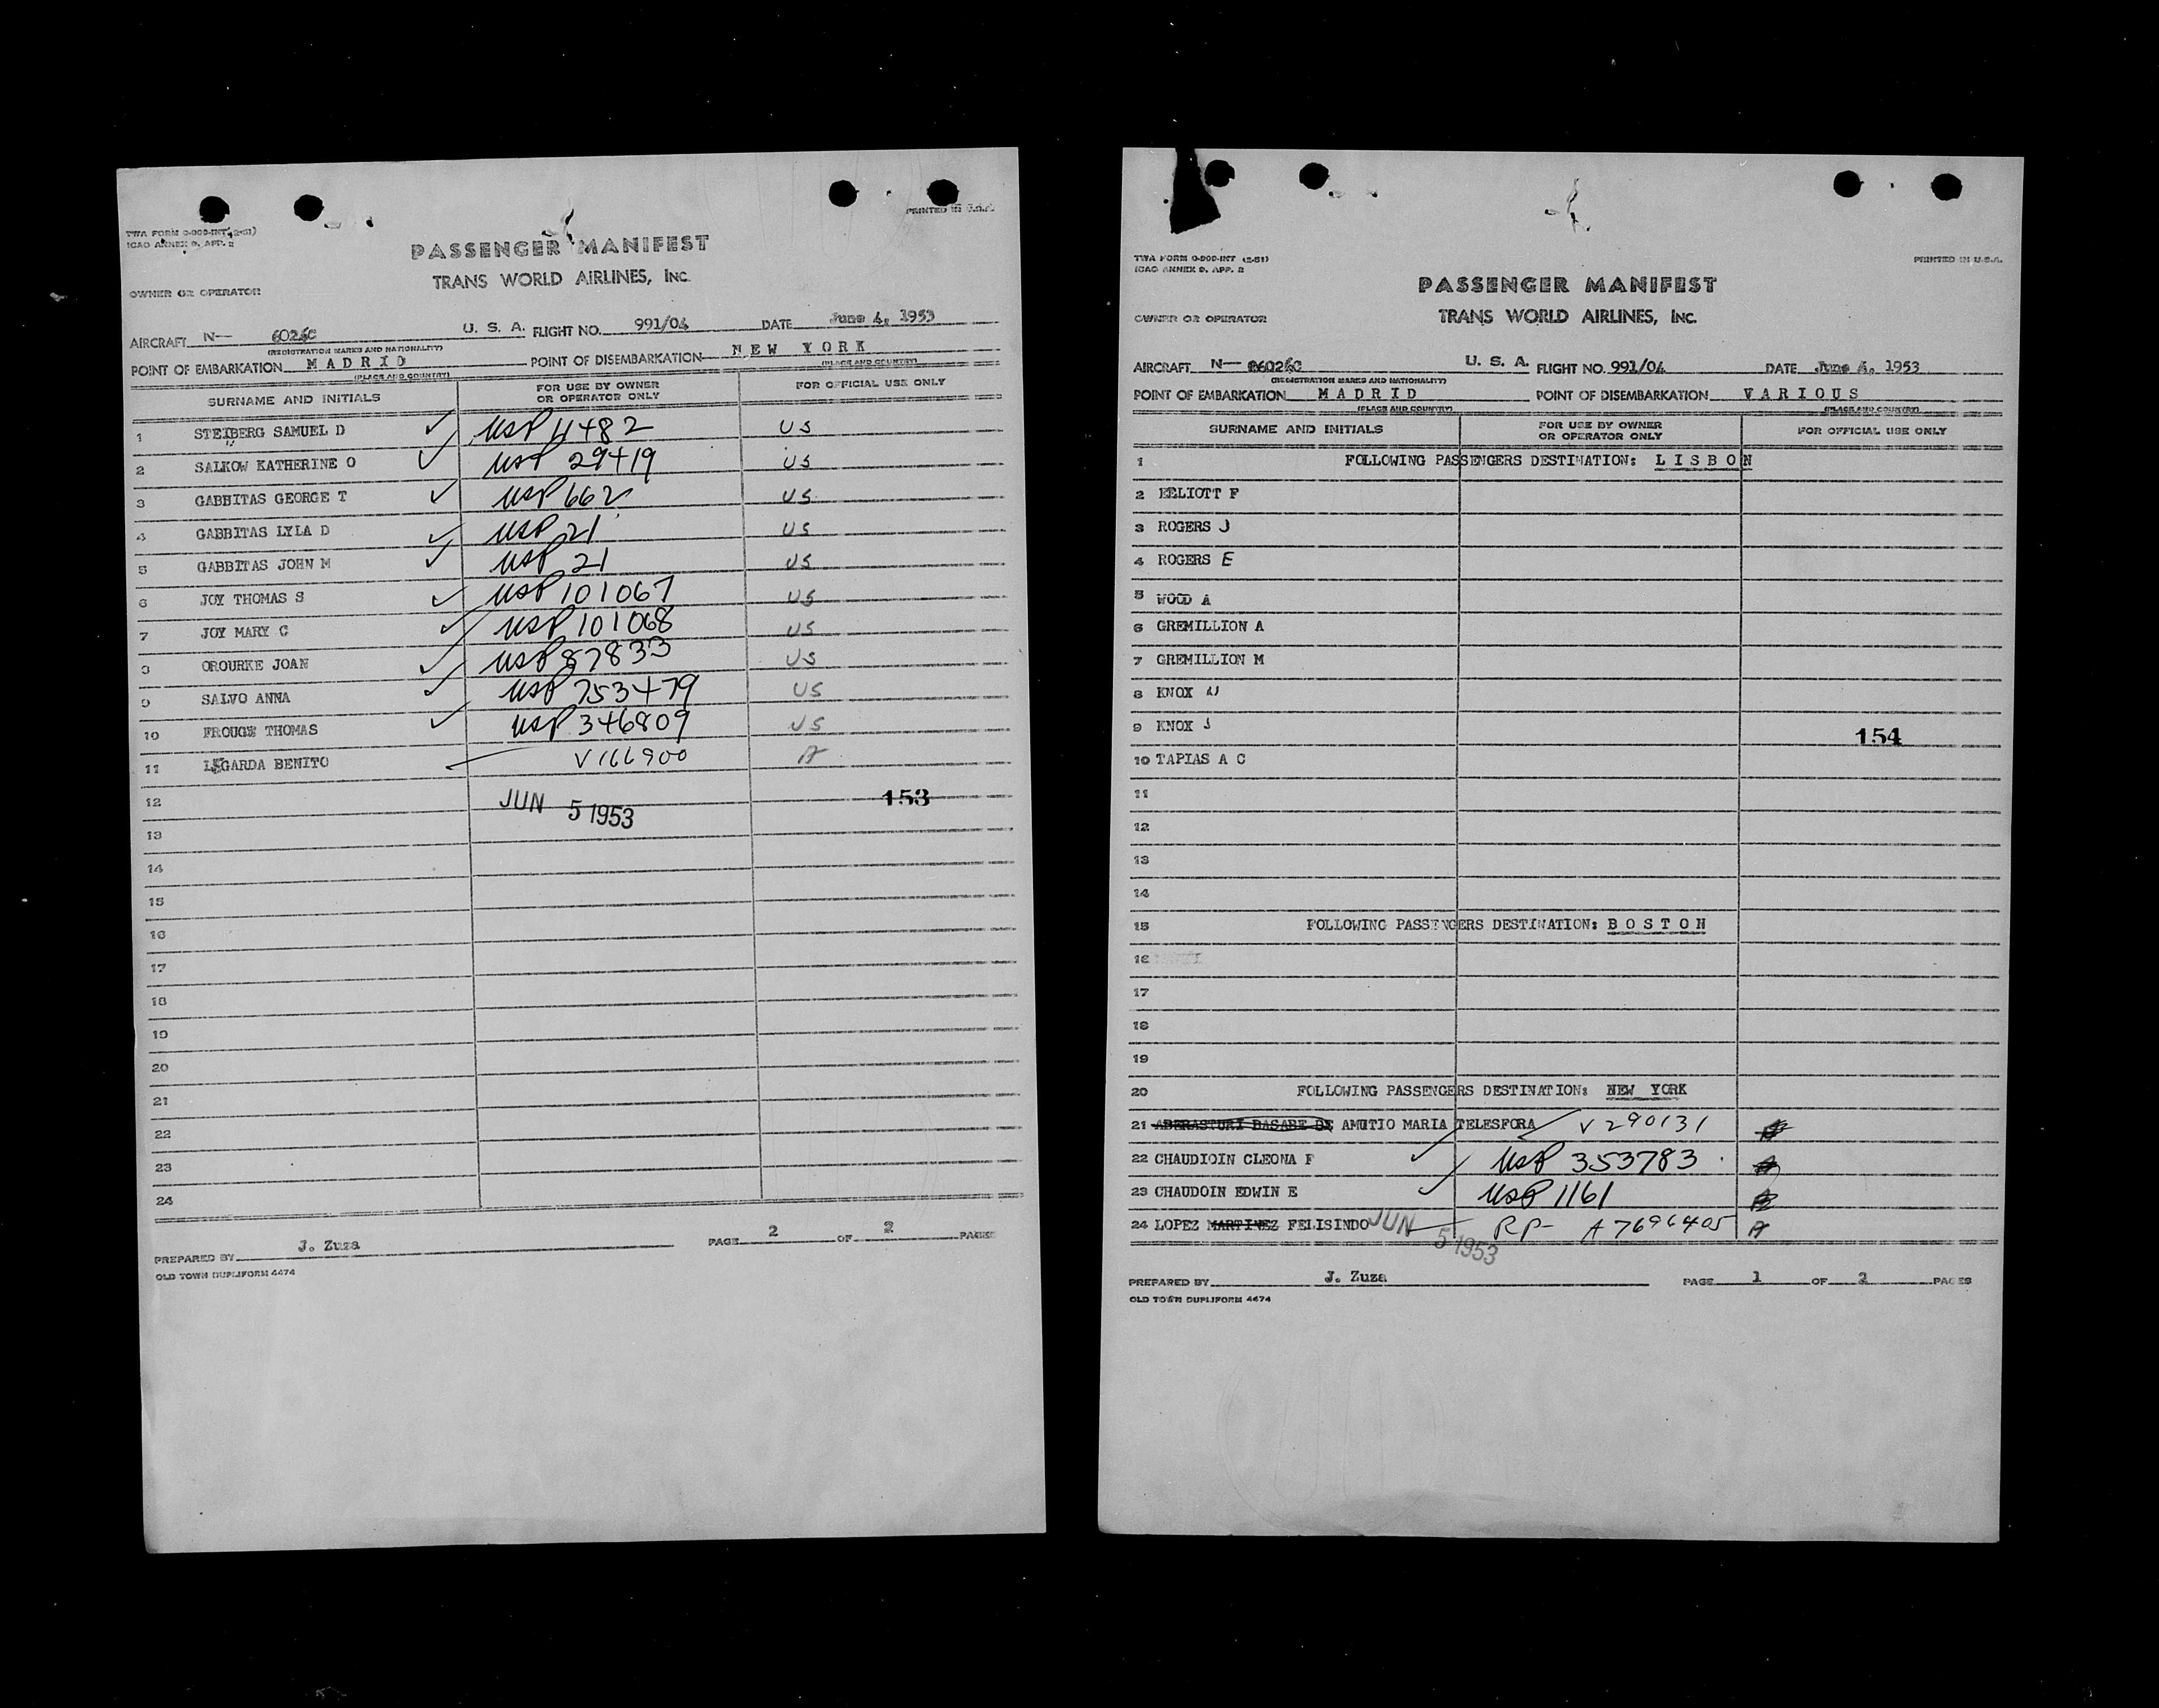 TWA FORM O-900-INT (2-51)
ICAO ANNEX 9, APP. 2
PRINTED IN U.S.A.
PASSENGER MANIFEST
TRANS WORLD AIRLINES, Inc.
OWNER OR OPERATOR
AIRCRAFT N— 6026C U. S. A. FLIGHT NO. 991/04 DATE June 4, 1953
(REGISTRATION MARKS AND NATIONALITY)
POINT OF EMBARKATION MADRID POINT OF DISEMBARKATION NEW YORK
(PLACE AND COUNTRY) (PLACE AND COUNTRY)
SURNAME AND INITIALS FOR USE BY OWNER OR OPERATOR ONLY FOR OFFICIAL USE ONLY
1 STEIBERG SAMUEL D ✓ USP 11482 US
2 SALKOW KATHERINE O ✓ USP 29419 US
3 GABBITAS GEORGE T ✓ USP 662 US
4 GABBITAS LYLA D ✓ USP 21 US
5 GABBITAS JOHN M ✓ USP 21 US
6 JOY THOMAS S ✓ USP 101067 US
7 JOY MARY C ✓ USP 101068 US
8 OROURKE JOAN ✓ USP 87833 US
9 SALVO ANNA ✓ USP 753479 US
10 FROUGE THOMAS ✓ USP 346809 US
11 LEGARDA BENITO V166900 A
12 JUN 5 1953 153
13
14
15
16
17
18
19
20
21
22
23
24
PREPARED BY J. Zuza PAGE 2 OF 2 PAGES
OLD TOWN DUPLIFORM 4474
TWA FORM O-900-INT (2-51)
ICAO ANNEX 9, APP. 2
PRINTED IN U.S.A.
PASSENGER MANIFEST
TRANS WORLD AIRLINES, Inc.
OWNER OR OPERATOR
AIRCRAFT N— 6026C U. S. A. FLIGHT NO. 991/04 DATE June 4, 1953
(REGISTRATION MARKS AND NATIONALITY)
POINT OF EMBARKATION MADRID POINT OF DISEMBARKATION VARIOUS
(PLACE AND COUNTRY) (PLACE AND COUNTRY)
SURNAME AND INITIALS FOR USE BY OWNER OR OPERATOR ONLY FOR OFFICIAL USE ONLY
1 FOLLOWING PASSENGERS DESTINATION: LISBON
2 ELLIOTT F
3 ROGERS J
4 ROGERS E
5 WOOD A
6 GREMILLION A
7 GREMILLION M
8 KNOX W
9 KNOX J
154
10 TAPIAS A C
11
12
13
14
15 FOLLOWING PASSENGERS DESTINATION: BOSTON
16
17
18
19
20 FOLLOWING PASSENGERS DESTINATION: NEW YORK
21 ABERASTURI BASABE DE AMUTIO MARIA TELESFORA ✓ V290131
22 CHAUDIOIN CLEONA F ✓ USP 353783
23 CHAUDOIN EDWIN E ✓ USP 1161
24 LOPEZ MARTINEZ FELISINDO RP- A7696405 A
JUN 5 1953
PREPARED BY J. Zuza PAGE 1 OF 2 PAGES
OLD TOWN DUPLIFORM 4474